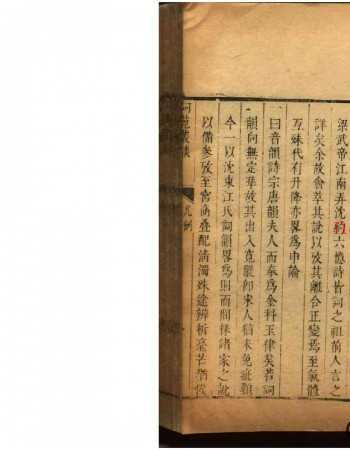 梁武帝江南弄沈約六憶詩皆詞之祖前人言之
詳矣余故會萃其說以攷其離合正變焉至氣體
互殊代有升降亦畧為申論
一曰音韻詩宗唐韻夫人而奉為金科玉律矣若詞
韻向無定準故其出入寬嚴即宋人猶未免歧趨
今一以沈東江氏詞韻畧為則而間採諸家之說
以備參攷至宮商疊配清濁殊途辨析毫芒猶俟
詞苑叢談 凡例